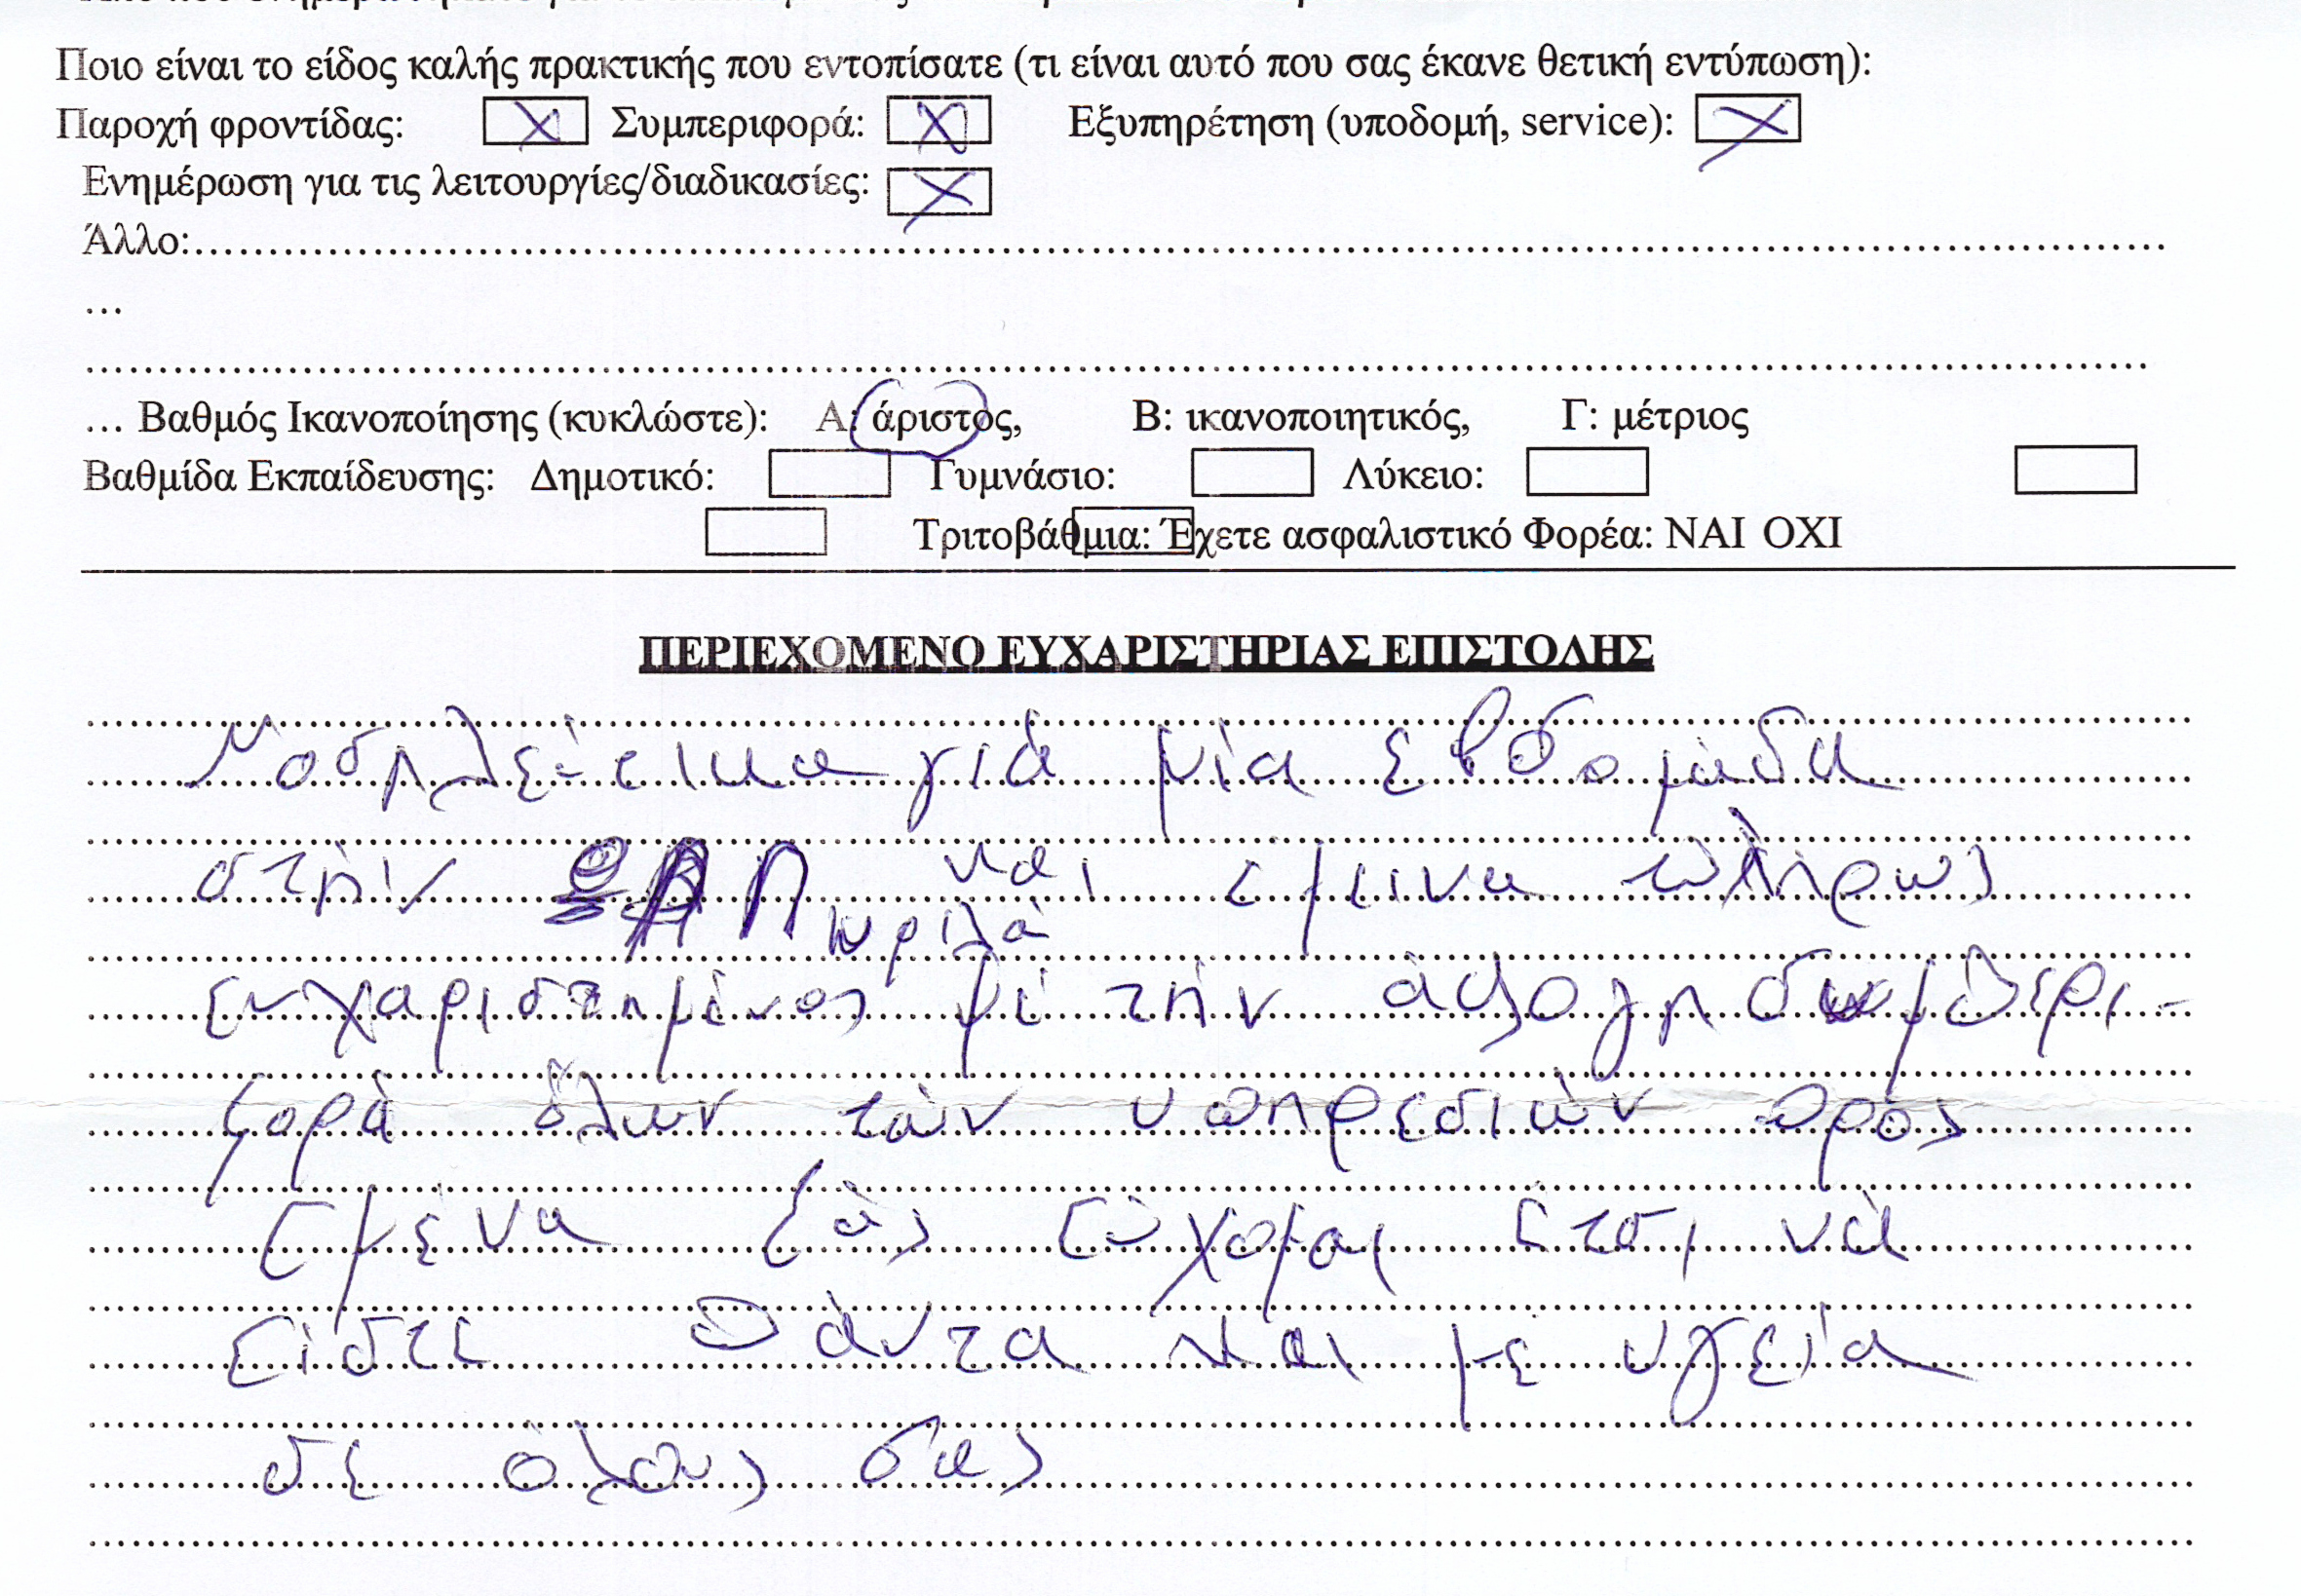 Ποιο είναι το είδος καλής πρακτικής που εντοπίσατε (τι είναι αυτό που σας έκανε θετική εντύπωση):
Παροχή φροντίδας: Χ Συμπεριφορά: Χ Εξυπηρέτηση (υποδομή, service): Χ
Ενημέρωση για τις λειτουργίες/διαδικασίες: Χ
Άλλο:..........
...
..........
... Βαθμός Ικανοποίησης (κυκλώστε): Α: άριστος, Β: ικανοποιητικός, Γ: μέτριος
Βαθμίδα Εκπαίδευσης: Δημοτικό: Γυμνάσιο: Λύκειο:
Τριτοβάθμια: Έχετε ασφαλιστικό Φορέα: ΝΑΙ ΟΧΙ
ΠΕΡΙΕΧΟΜΕΝΟ ΕΥΧΑΡΙΣΤΗΡΙΑΣ ΕΠΙΣΤΟΛΗΣ
για μία εβδομάδα
στην και έμεινα πλήρως
ευχαριστημένος μέ τήν άψογη συμπερι-
φορά όλων τών υπηρεσιών πρός
εμένα Σάς εύχομαι έτσι νά
είστε πάντα και με υγεία
σε όλους σας